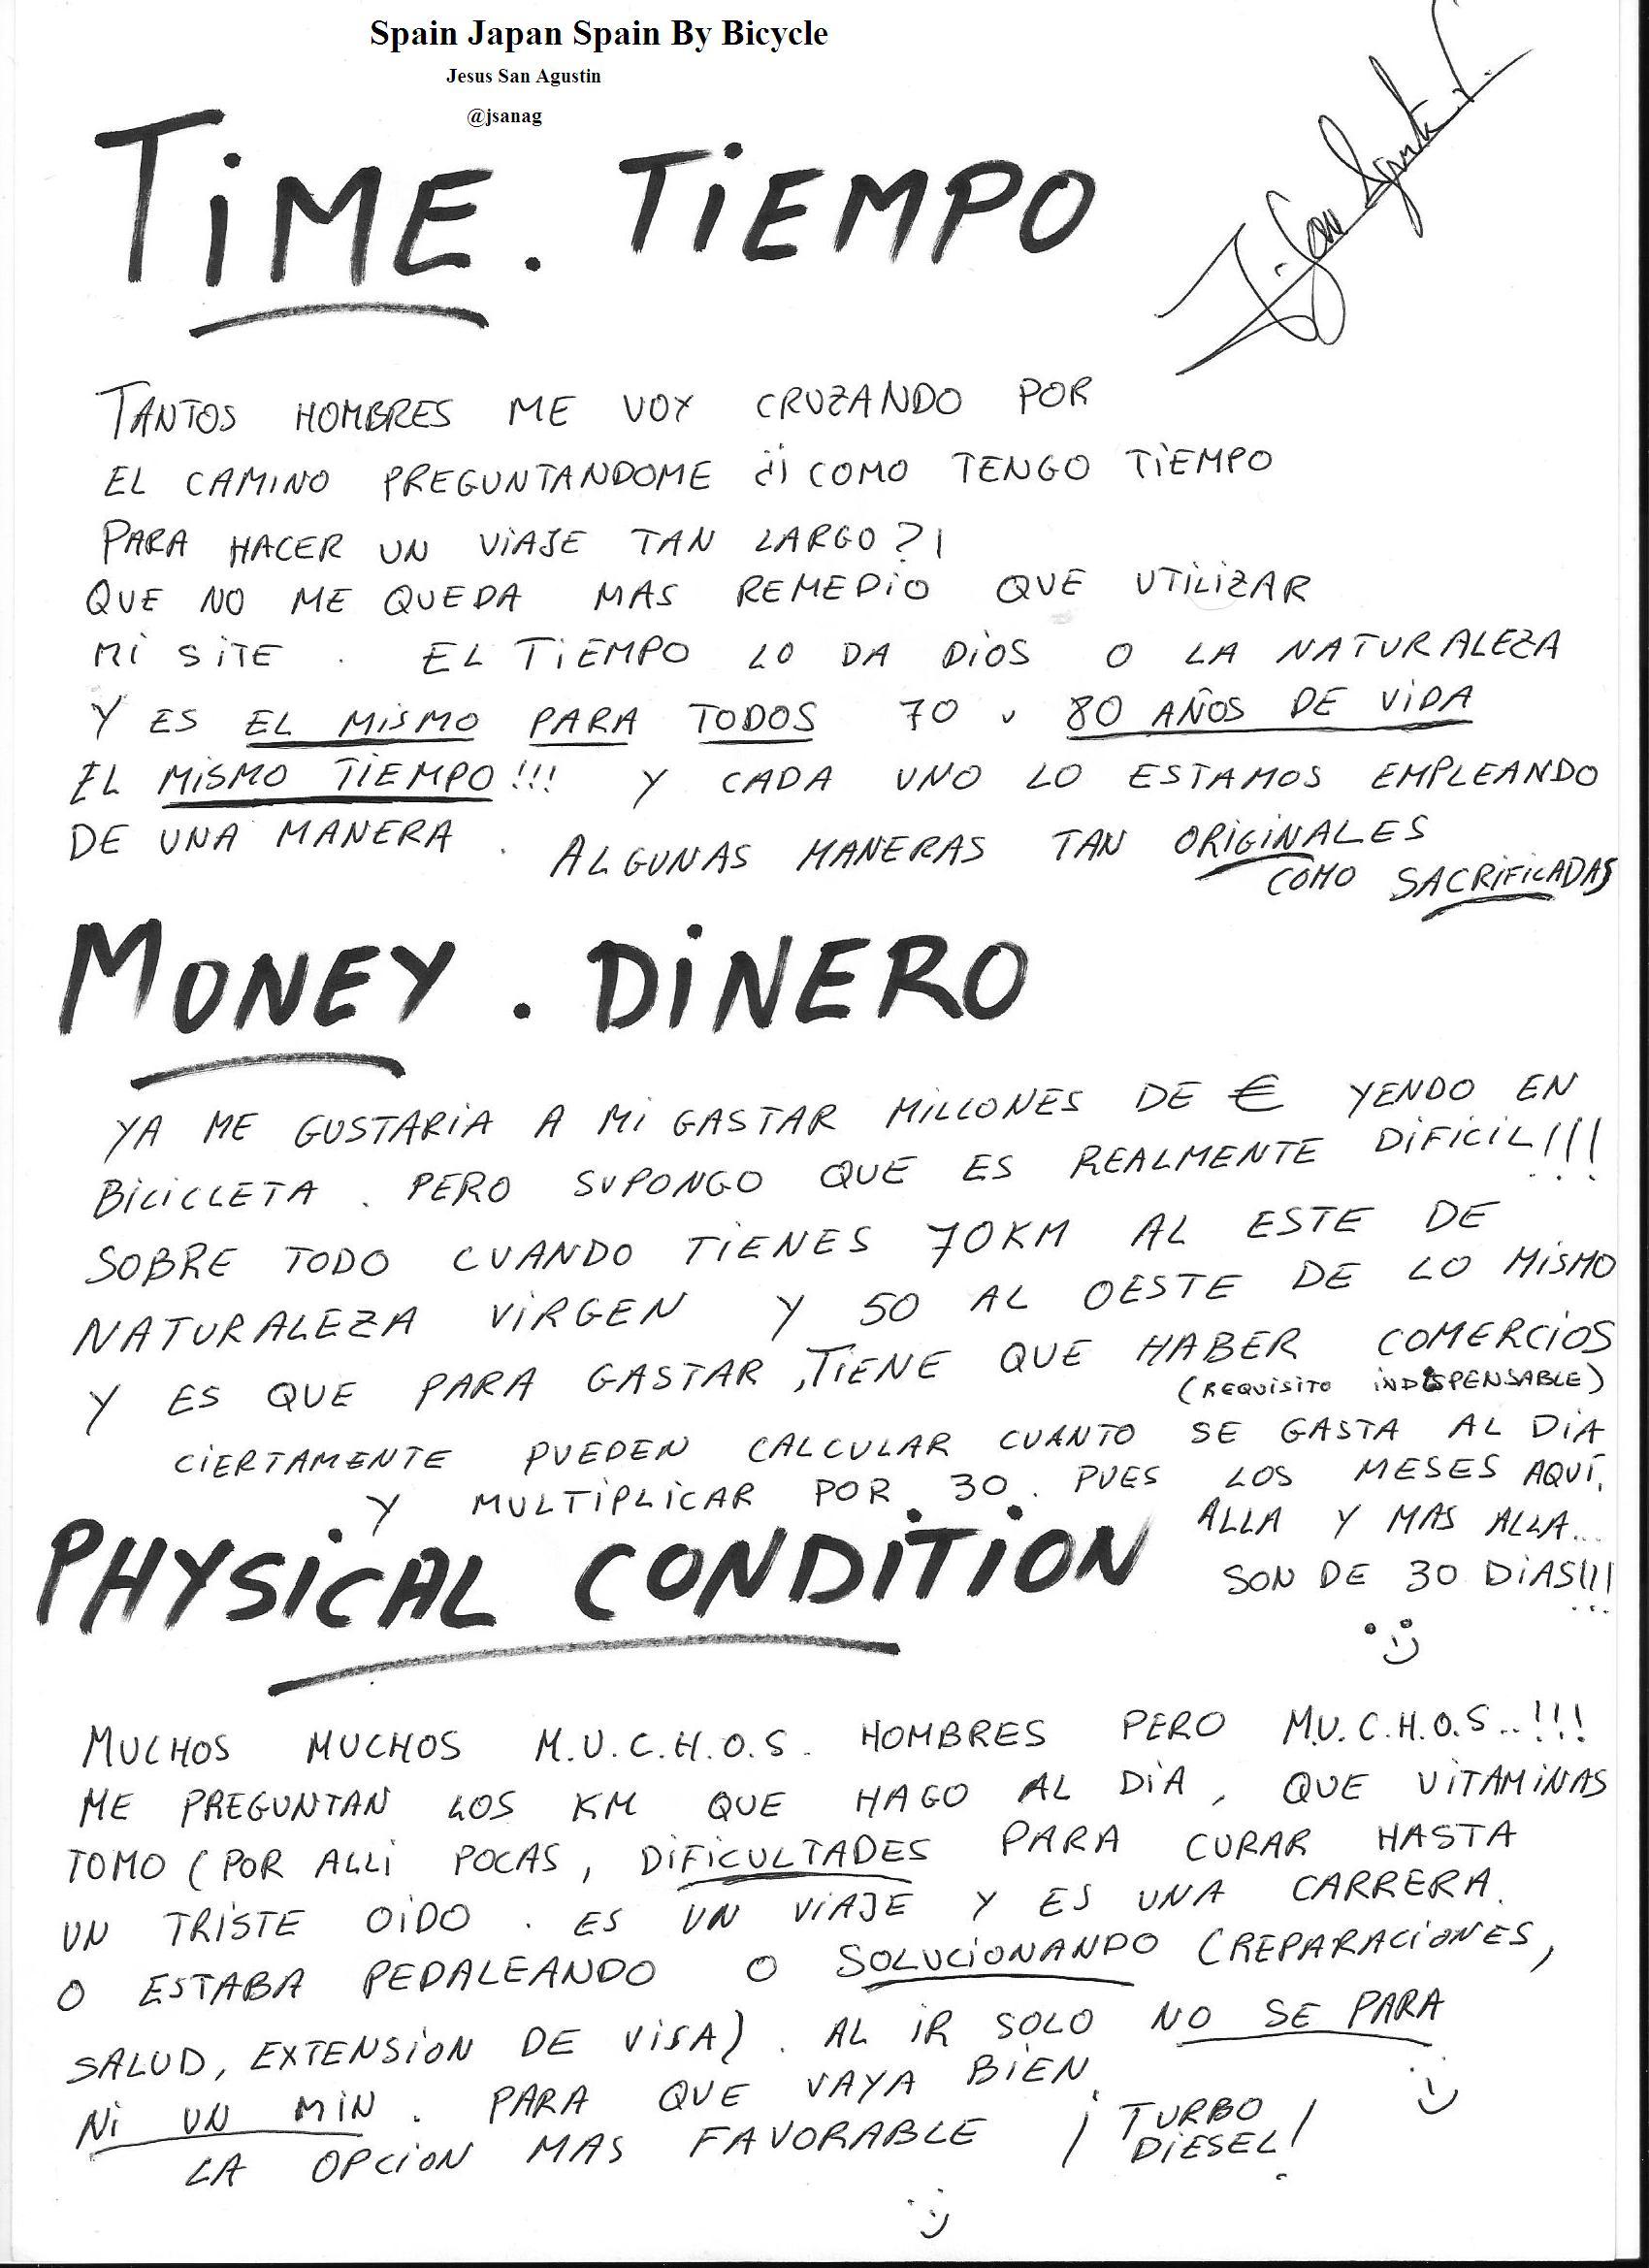 Spain Japan Spain By Bicycle
Jesus San Agustin
@jsanag
TiME. TiEMPO
J. San Agustin
TANTOS HOMBRES ME VOY CRUZANDO POR
EL CAMINO PREGUNTANDOME ¿¡COMO TENGO TiEMPO
PARA HACER UN ViAJE TAN LARGO?!
QUE NO ME QUEDA MAS REMEDiO QUE UTiLiZAR
Mi SiTE. EL TiEMPO LO DA DiOS O LA NATURALEZA
Y ES EL MiSMO PARA TODOS 70 u 80 AÑOS DE ViDA
EL MiSMO TiEMPO!!! Y CADA UNO LO ESTAMOS EMPLEANDO
DE UNA MANERA. ALGUNAS MANERAS TAN ORiGiNALES
COMO SACRiFiCADAS
MONEY. DiNERO
YA ME GUSTARiA A Mi GASTAR MiLLONES DE € YENDO EN
BiCiCLETA. PERO SUPONGO QUE ES REALMENTE DiFiCiL!!!
SOBRE TODO CUANDO TiENES 70KM AL ESTE DE
NATURALEZA ViRGEN Y 50 AL OESTE DE LO MiSMO
Y ES QUE PARA GASTAR, TiENE QUE HABER COMERCiOS
(REQUiSiTO iNDiSPENSABLE)
CiERTAMENTE PUEDEN CALCULAR CUANTO SE GASTA AL DiA
Y MULTiPLiCAR POR 30. PUES LOS MESES AQUÍ,
ALLA Y MAS ALLA...
SON DE 30 DiAS!!!
PHYSiCAL CONDiTiON
MUCHOS MUCHOS M.U.C.H.O.S. HOMBRES PERO M.U.C.H.O.S..!!!
ME PREGUNTAN LOS KM QUE HAGO AL DiA, QUE ViTAMiNAS
TOMO (POR ALLi POCAS, DiFiCULTADES PARA CURAR HASTA
UN TRiSTE OiDO. ES UN ViAJE Y ES UNA CARRERA.
O ESTABA PEDALEANDO O SOLUCiONANDO (REPARACiONES,
SALUD, EXTENSiON DE ViSA). AL iR SOLO NO SE PARA
Ni UN MiN. PARA QUE VAYA BiEN,
LA OPCiON MAS FAVORABLE ¡TURBO
DiESEL!